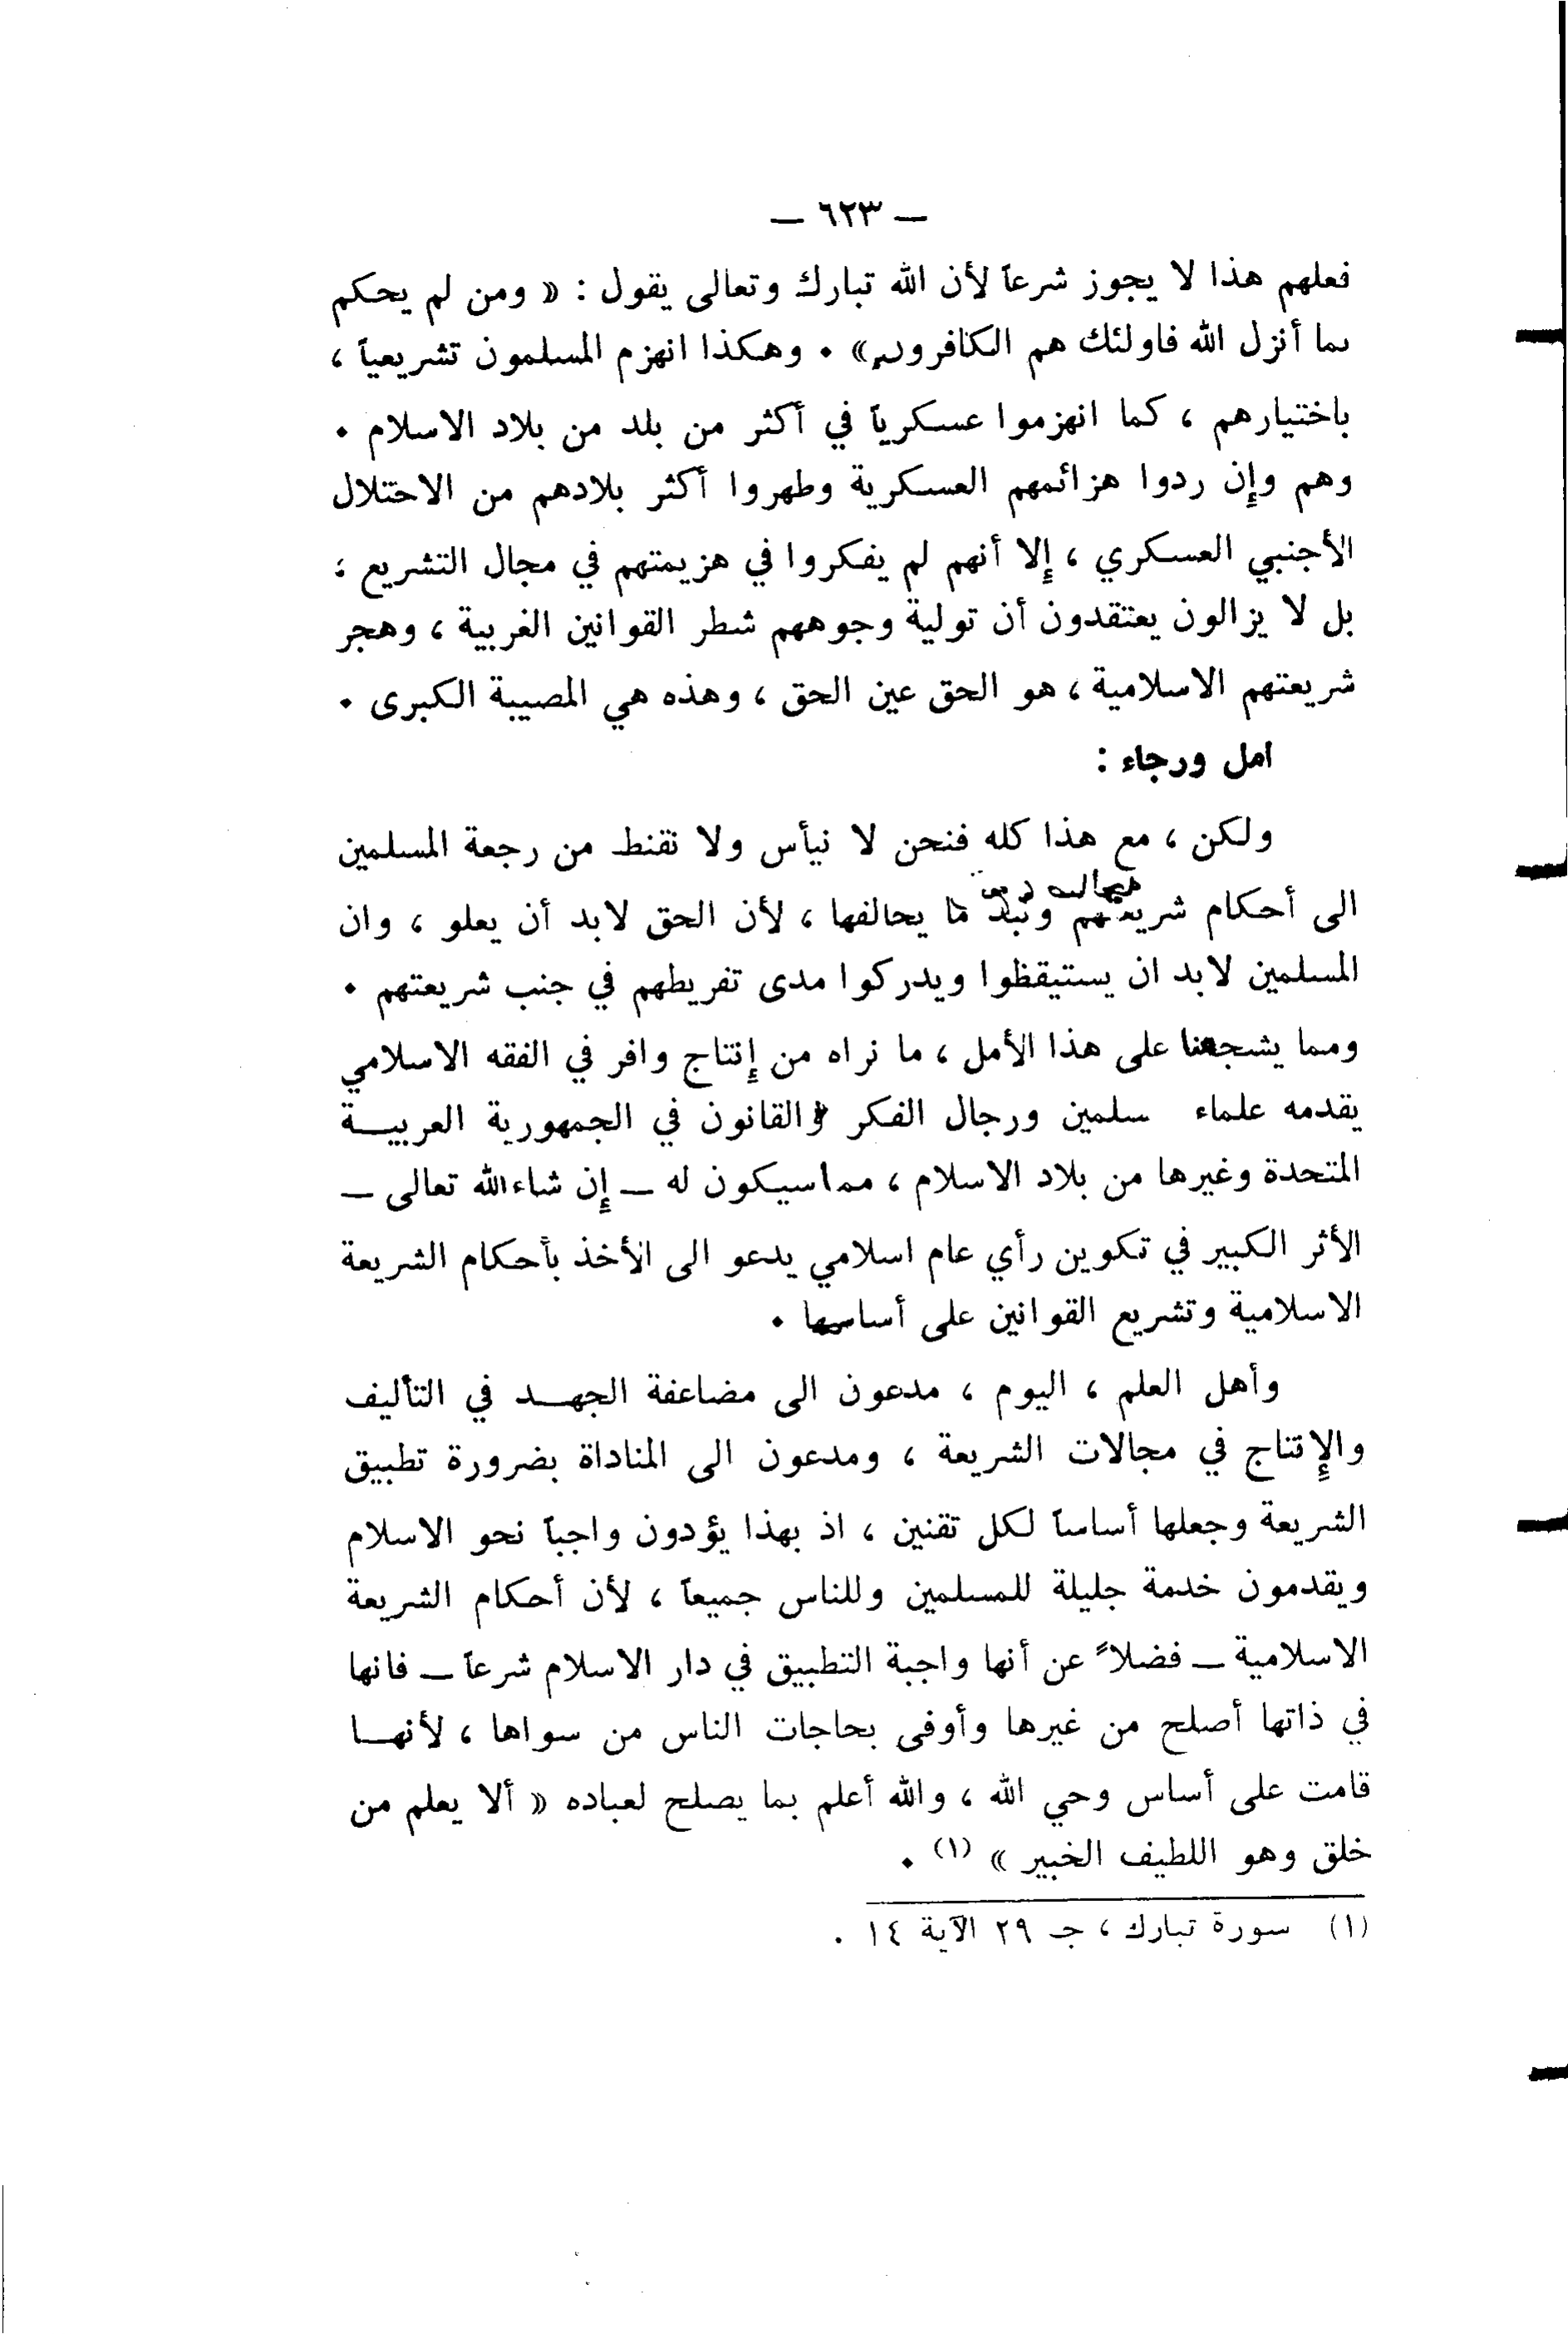 — ٦٢٣ —
فعلهم هذا لا يجوز شرعاً لأن الله تبارك وتعالى يقول : « ومن لم يحكم
بما أنزل الله فاولئك هم الكافرون» ٠ وهكذا انهزم المسلمون تشريعياً ،
باختيارهم ، كما انهزموا عسكرياً في أكثر من بلد من بلاد الاسلام ٠
وهم وإن ردوا هزائمهم العسكرية وطهروا أكثر بلادهم من الاحتلال
الأجنبي العسكري ، إلا أنهم لم يفكروا في هزيمتهم في مجال التشريع ؛
بل لا يزالون يعتقدون أن تولية وجوههم شطر القوانين الغربية ، وهجر
شريعتهم الاسلامية ، هو الحق عين الحق ، وهذه هي المصيبة الكبرى ٠
امل ورجاء :
ولكن ، مع هذا كله فنحن لا نيأس ولا نقنط من رجعة المسلمين
الى أحكام شريعتهم ونبذ ما يخالفها ، لأن الحق لابد أن يعلو ، وان
المسلمين لابد ان يستيقظوا ويدركوا مدى تفريطهم في جنب شريعتهم ٠
ومما يشجعنا على هذا الأمل ، ما نراه من إنتاج وافر في الفقه الاسلامي
يقدمه علماء سلمين ورجال الفكر والقانون في الجمهورية العربيــة
المتحدة وغيرها من بلاد الاسلام ، مما سيكون له — إن شاءالله تعالى —
الأثر الكبير في تكوين رأي عام اسلامي يدعو الى الأخذ بأحكام الشريعة
الاسلامية وتشريع القوانين على أساسها ٠
وأهل العلم ، اليوم ، مدعون الى مضاعفة الجهــد في التأليف
والإنتاج في مجالات الشريعة ، ومدعون الى المناداة بضرورة تطبيق
الشريعة وجعلها أساساً لكل تقنين ، اذ بهذا يؤدون واجباً نحو الاسلام
ويقدمون خدمة جليلة للمسلمين وللناس جميعاً ، لأن أحكام الشريعة
الاسلامية — فضلاً عن أنها واجبة التطبيق في دار الاسلام شرعاً — فانها
في ذاتها أصلح من غيرها وأوفى بحاجات الناس من سواها ، لأنهــا
قامت على أساس وحي الله ، والله أعلم بما يصلح لعباده « ألا يعلم من
خلق وهو اللطيف الخبير » (١) ٠
(١) سورة تبارك ، جـ ٢٩ الآية ١٤ .